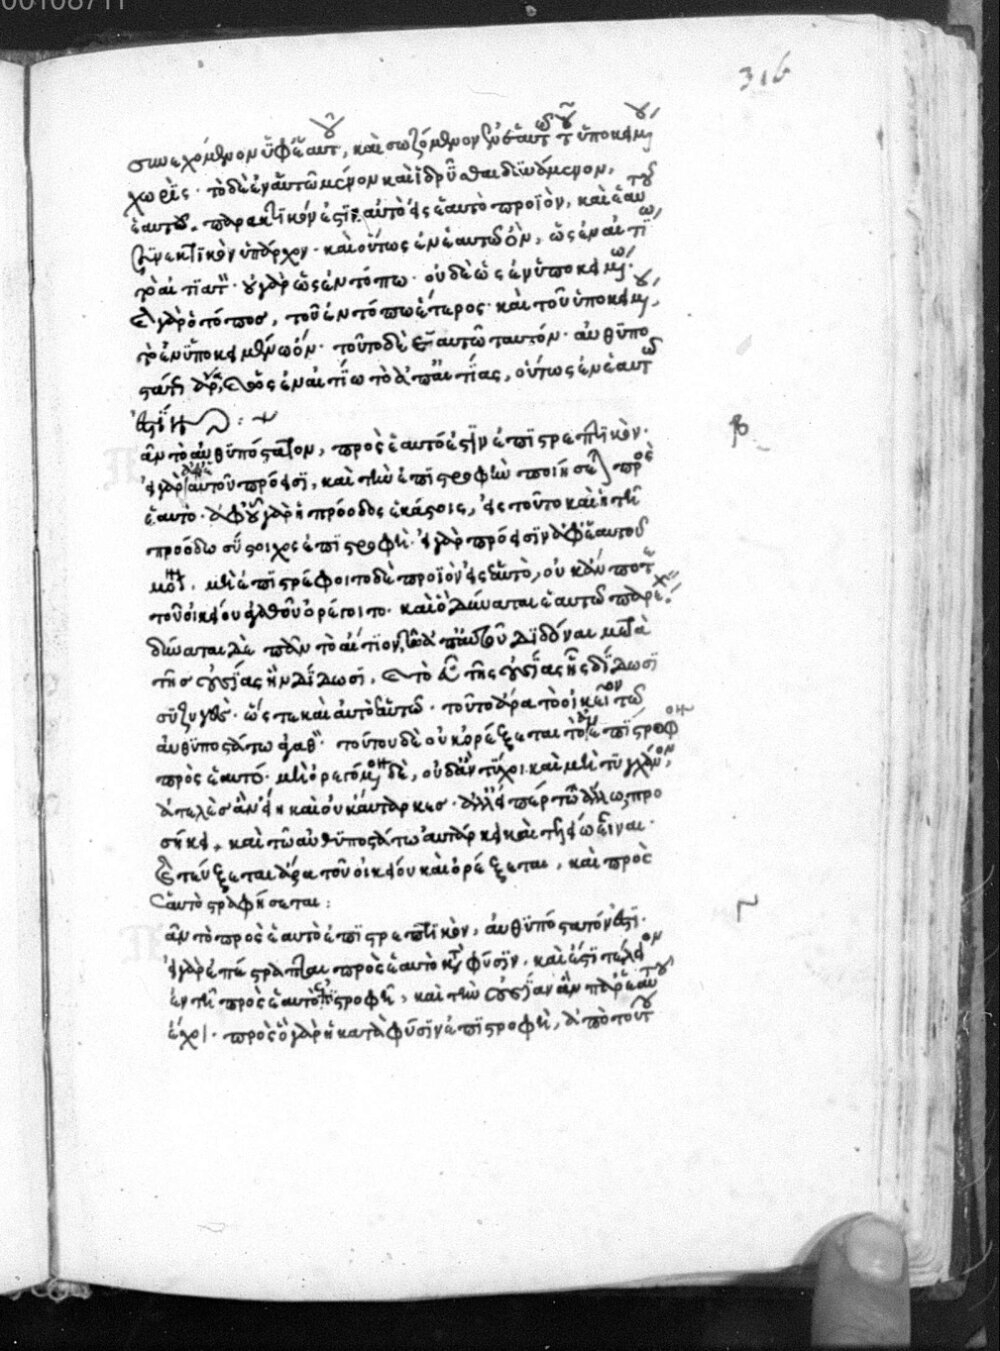 316
συνεχόμενον ὑφ' ἑαυτοῦ, καὶ σωζόμενον ἐν ἑαυτῷ τοῦ ὑποκειμένου
χωρίς· τὸ δὲ ἐν ἑαυτῷ μένον καὶ ἱδρῦσθαι δυνάμενον,
ἑαυτοῦ παρακτικόν ἐστιν, αὐτὸ εἰς ἑαυτὸ προϊόν, καὶ ἑαυτοῦ
συνεκτικὸν ὑπάρχον· καὶ οὕτως ἐν ἑαυτῷ ὄν, ὡς ἐν αἰτίῳ
τὸ αἰτιατόν· οὐ γὰρ ὡς ἐν τόπῳ· οὐδὲ ὡς ἐν ὑποκειμένῳ·
ὅ γὰρ ὁ τόπος, τοῦ ἐν τόπῳ ἕτερος· καὶ τοῦ ὑποκειμένου,
τὸ ἐν ὑποκειμένῳ ὄν· τοῦτο δὲ ἑαυτῷ ταὐτόν· αὐθυπο
στάτως ἄρα, καὶ ὡς ἐν αἰτίῳ τὸ ἀπ' αἰτίας, οὕτως ἐν ἑαυτῷ
ἐστιν
πᾶν τὸ αὐθυπόστατον, πρὸς ἑαυτό ἐστιν ἐπιστρεπτικόν·
εἰ γὰρ ἀφ' ἑαυτοῦ πρόεισι, καὶ τὴν ἐπιστροφὴν ποιήσεται πρὸς
ἑαυτό· ἀφ' οὗ γὰρ ἡ πρόοδος ἑκάστοις, εἰς τοῦτο καὶ ἡ τῇ
προόδῳ σύστοιχος ἐπιστροφή· εἰ γὰρ πρόεισιν ἀφ' ἑαυτοῦ
μόνον, μὴ ἐπιστρέφοιτο δὲ προϊὸν εἰς ἑαυτό, οὐκ ἄν ποτε
τοῦ οἰκείου ἀγαθοῦ ὀρέγοιτο· καὶ ὃ δύναται ἑαυτῷ παρέχειν
δύναται δὲ πᾶν τὸ αἴτιον, τῷ ἀπ' αὐτοῦ διδόναι μετὰ
τῆς οὐσίας ἣν δίδωσι, καὶ τὸ εὖ τῆς οὐσίας ἧς δίδωσι
σύζυγον· ὥστε καὶ αὐτὸ ἑαυτῷ· τοῦτο ἄρα τὸ οἰκεῖον τῷ
αὐθυποστάτῳ ἀγαθόν· τούτου δὲ οὐκ ὀρέξεται τὸ ἀνεπίστροφον
πρὸς ἑαυτό· μὴ ὀρεγόμενον δὲ, οὐδ' ἂν τύχοι· καὶ μὴ τυγχάνον,
ἀτελὲς ἂν εἴη καὶ οὐκ αὔταρκες· ἀλλ' εἴπερ τῳ ἄλλῳ, προ
σήκει, καὶ τῷ αὐθυποστάτῳ αὐτάρκει καὶ τελείῳ εἶναι·
καὶ τεύξεται ἄρα τοῦ οἰκείου καὶ ὀρέξεται, καὶ πρὸς
ἑαυτὸ στραφήσεται:
πᾶν τὸ πρὸς ἑαυτὸ ἐπιστρεπτικόν, αὐθυπόστατόν ἐστι·
εἰ γὰρ ἐπέστραπται πρὸς ἑαυτὸ κατὰ φύσιν, καὶ ἔστι τέλειον
ἐν τῇ πρὸς ἑαυτὸ ἐπιστροφῇ, καὶ τὴν οὐσίαν ἂν παρ' ἑαυτοῦ
ἔχοι· πρὸς ὃ γὰρ ἡ κατὰ φύσιν ἐπιστροφή, ἀπὸ τούτου